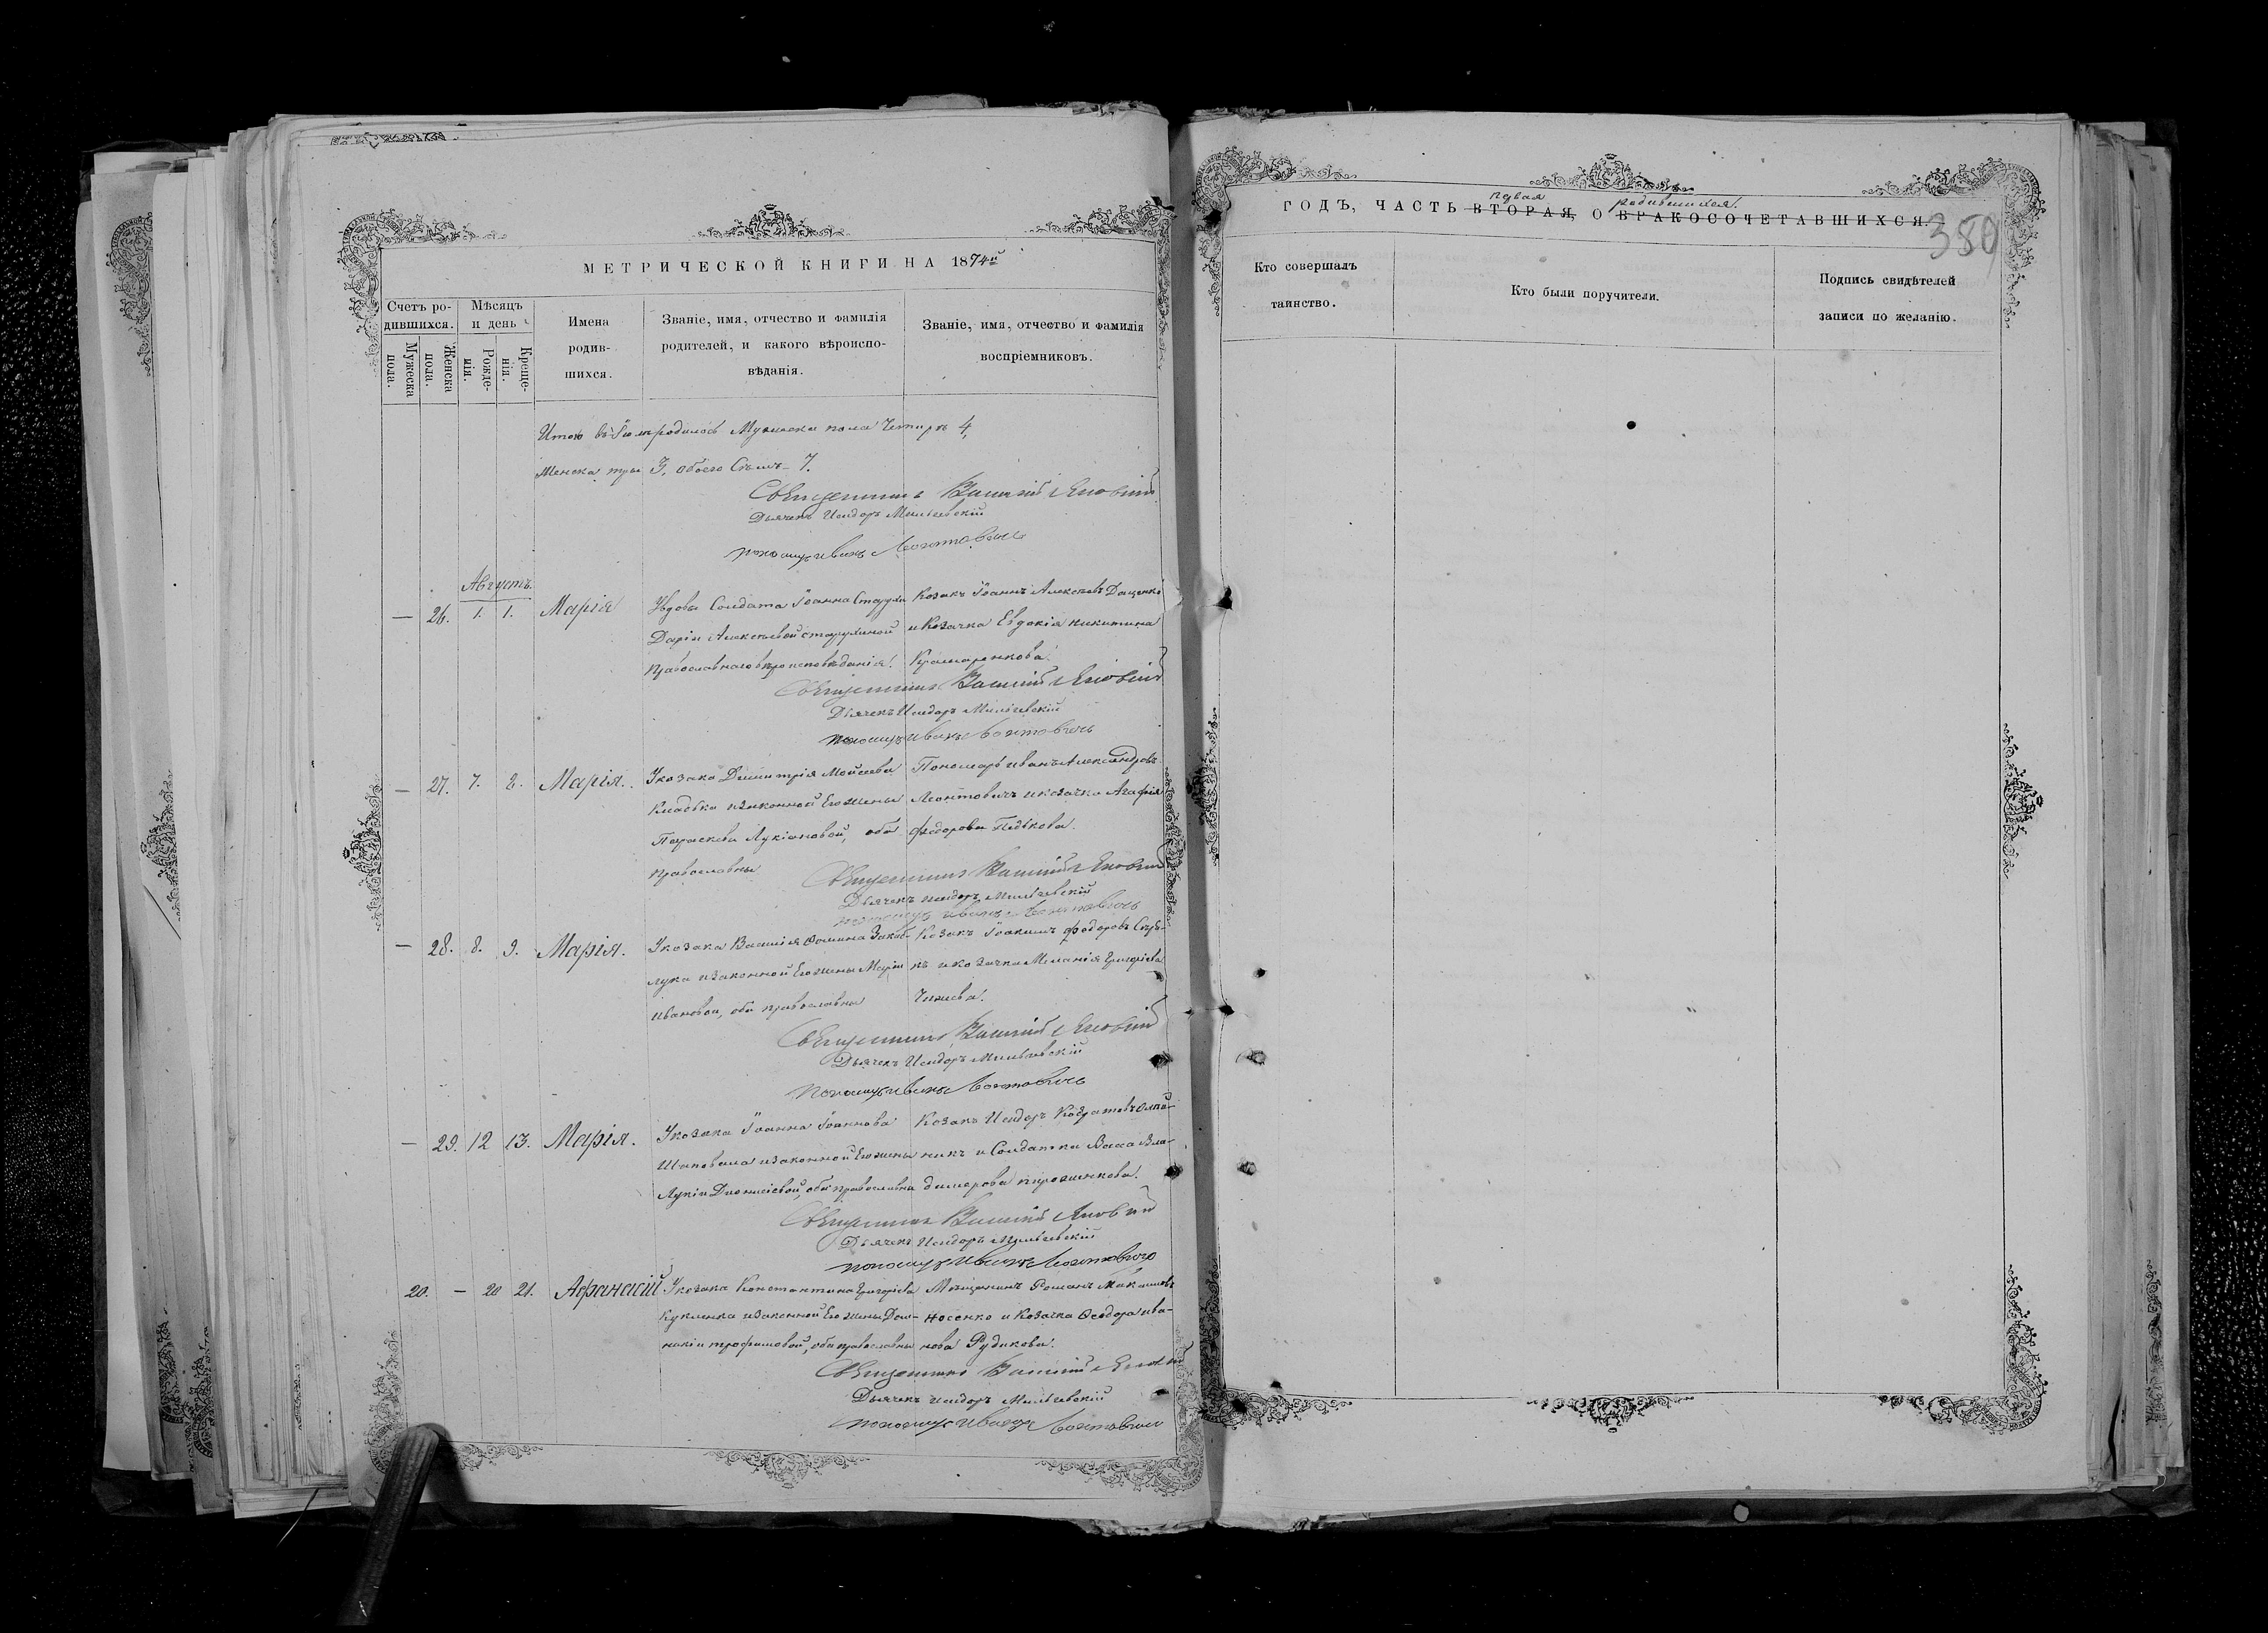 МЕТРИЧЕСКОЙ КНИГИ НА 1874й
Счетъ ро-
дившихся.
Мужеска
пола.
Женска
пола.
Мѣсяцъ
и день
Рожде-
нія.
Креще-
нія.
Имена
родив-
шихся.
Званіе, имя, отчество и фамилія
родителей, и какого вѣроиспо-
вѣданія.
Званіе, имя, отчество и фамилія
воспріемниковъ.
Итого въ родилось Мужеска пола Четыре 4,
Женска три 3, обоего Семь 7.
Священникъ Василій
Дьячекъ Исидоръ
пономарь Иванъ Леонтовичь
Августъ.
— 26. 1. 1. Марія
Солдата Іоанна
Дарьи Алексѣевой
православнаго вѣроисповѣданія.
Козакъ Іоаннъ Алексѣевъ Даценко
и Козачка Евдокія Никитина
Крамаренкова.
Священникъ Василій
Дьячекъ Исидоръ
пономарь Иванъ Леонтовичь
— 27. 7. 8. Марія.
У козака Димитрія Моисеева
и законной Его жены
Параскевы Лукіановой, оба
православны
Пономарь Иванъ Александровъ
Леонтовичъ и козачка Агафія
Федорова Педькова.
Священникъ Василій
Дьячекъ Исидоръ
пономарь Иванъ Леонтовичь
— 28. 8. 9. Марія.
У козака Василія Фомина
и законной Его жены Маріи
Ивановой, оба православны
Козакъ Іоакимъ Федоровъ
и козачка Меланія Григоріева
Священникъ Василій
Дьячекъ Исидоръ
пономарь Иванъ Леонтовичь
— 29. 12 13. Марія.
У козака Іоанна Іоаннова
Шаповала и законной Его жены
Лукіи Діонисіевой, оба православны
Козакъ Исидоръ
и Солдатка Васса Вла-
димерова
Священникъ Василій
Дьячекъ Исидоръ
пономарь Иванъ Леонтовичь
20. — 20 21. Афанасій
У козака Константина Григоріева
и законной Его жены Дом-
накіи Трофимовой, оба православны
Мѣщанинъ Романъ Максимовъ
Носенко и Козачка Феодора Ива-
нова Рудикова.
Священникъ Василій
Дьячекъ Исидоръ
пономарь Иванъ Леонтовичь
родившихся.
ГОДЪ, ЧАСТЬ ВТОРАЯ, О БРАКОСОЧЕТАВШИХСЯ.
380
Кто совершалъ
таинство.
Кто были поручители.
Подпись свидѣтелей
записи по желанію.